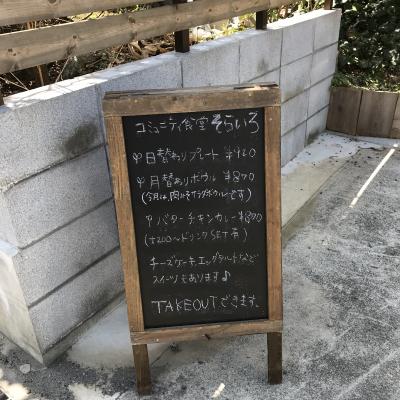 コミュニティ食堂 そらいろ
日替わりプレート ¥920
月替ありボウル ¥870
(今月は、肉みそサラダボウルです)
バターチキンカレー ¥870
(+200〜ドリンクSET有)
チーズケーキ、エッグタルトなど
スイーツもあります♪
TAKEOUTできます。